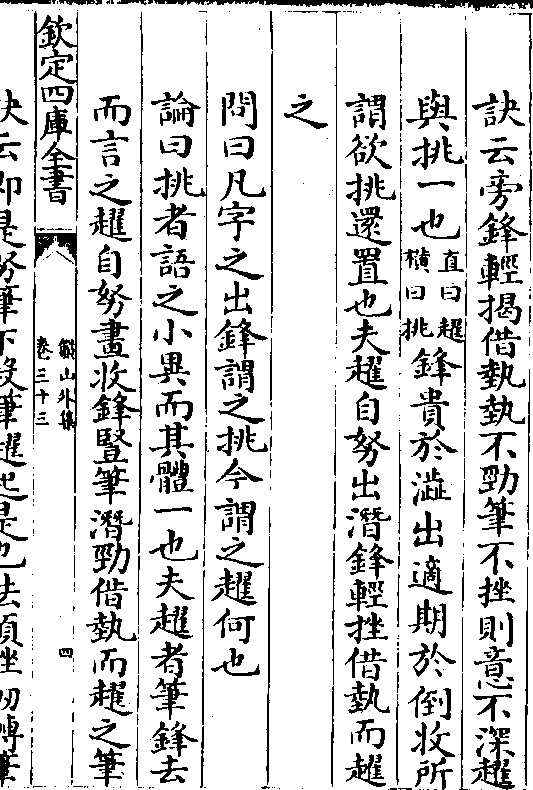 訣云旁鋒輕揭借埶埶不勁筆不挫則意不深趯
與挑一也直曰趯橫曰挑鋒貴於澁出適期於倒收所
謂欲挑還置也夫趯自努出潛鋒輕挫借埶而趯
之
問曰凡字之出鋒謂之挑今謂之趯何也
論曰挑者語之小異而其體一也夫趯者筆鋒去
而言之趯自努畫收鋒豎筆潛勁借埶而趯之筆
欽定四庫全書
山外集
卷三十三
四
訣云即是努筆下殺筆趯起是也法須挫衂轉筆